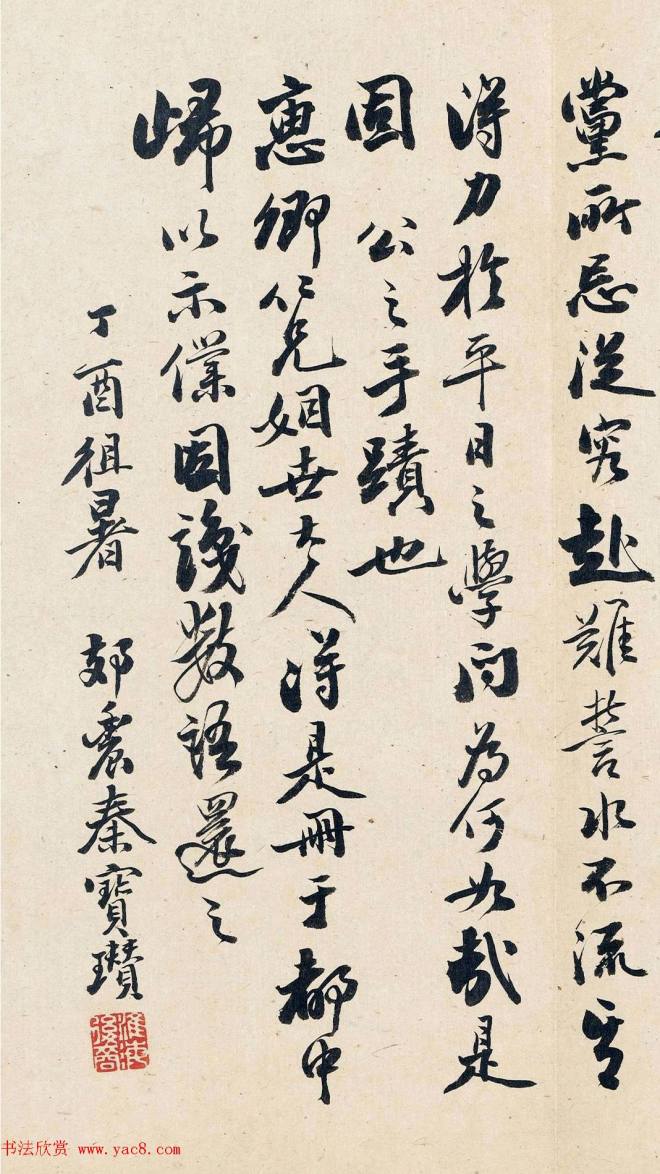 黨所忌從容赴難誓水不流其
得力於平日之學問為何如哉是
固 公之手蹟也
惠卿仁兄姻世大人得是冊于都中
歸以示僕因識數語還之
丁酉徂暑 秦寶瓚
淮海後裔
书法欣赏 www.yac8.com